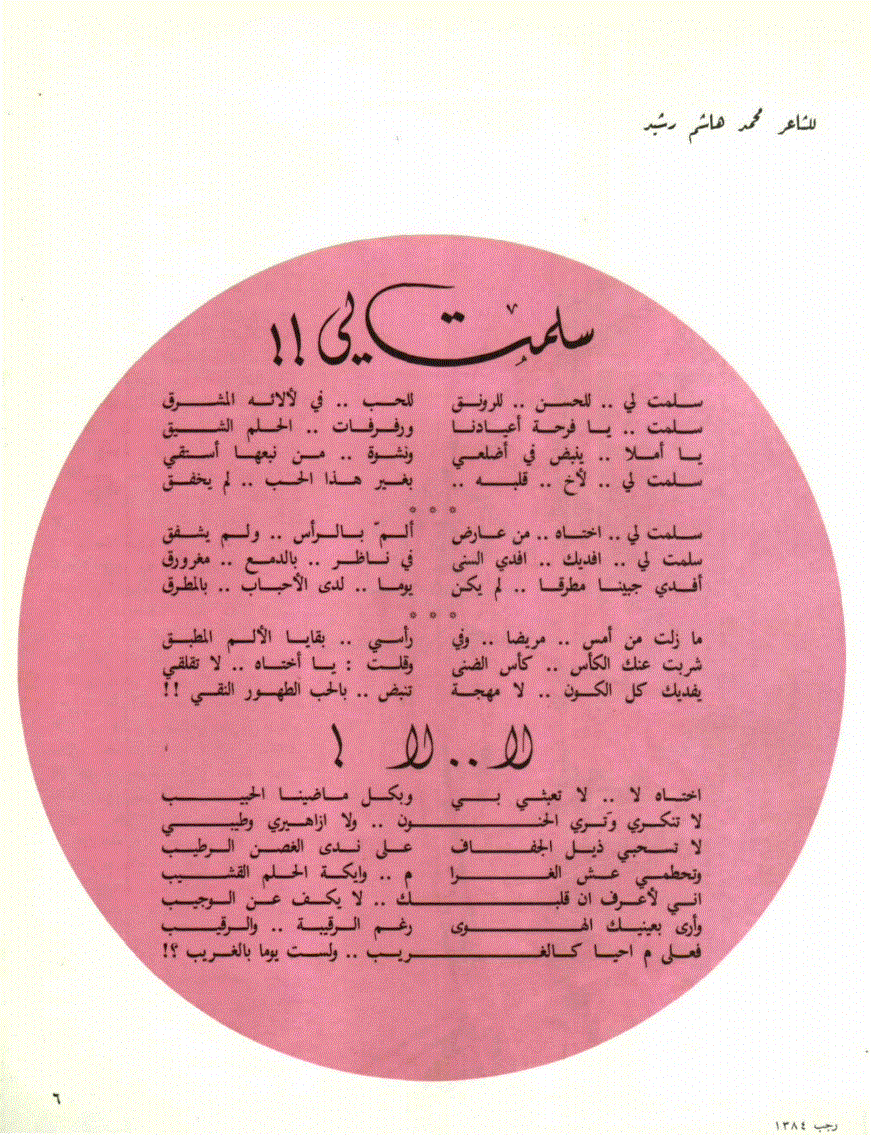 للشاعر محمد هاشم رشيد
سلمت لي !!
سلمت لي .. للحسن .. للرونق للحب .. في لألائه المشرق
سلمت .. يا فرحة أعيادنا ورفرفات .. الحلم الشيق
يا أملا .. ينبض في أضلعي ونشوة .. من نبعها أستقي
سلمت لي .. لأخ .. قلبه .. بغير هذا الحب .. لم يخفق
* * *
سلمت لي .. اختاه .. من عارض ألمّ بالرأس .. ولم يشفق
سلمت لي .. افديك .. افدي السنى في ناظر .. بالدمع .. مغرورق
أفدي جبينا مطرقا .. لم يكن يوما .. لدى الأحباب .. بالمطرق
* * *
ما زلت من أمس .. مريضا .. وفي رأسي .. بقايا الألم المطبق
شربت عنك الكأس .. كأس الضنى وقلت : يا أختاه .. لا تقلقي
يفديك كل الكون .. لا مهجة تنبض .. بالحب الطهور النقي !!
لا .. لا !
اختاه لا .. لا تعبثي بي وبكل ماضينا الحبيب
لا تنكري وتري الحنـــون .. ولا ازاهيري وطيبي
لا تسحبي ذيل الجفاف على ندى الغصن الرطيب
وتحطمي عش الغرا م .. وايكة الحلم القشيب
اني لأعرف ان قلبـــك .. لا يكف عن الوجيب
وأرى بعينيك الهوى رغم الرقيبة .. والرقيب
فعلى م احيا كالغـــريب .. ولست يوما بالغريب ؟!
٦
رجب ١٣٨٤